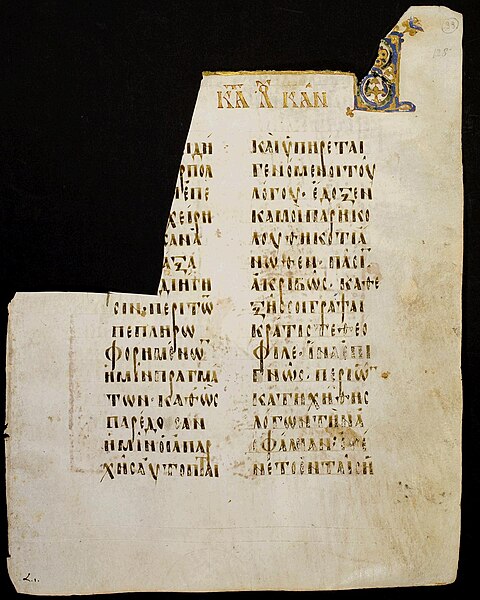 ΚΑ ΛȢ ΚΑΝ
99
ΙΔΗ
ΡΠΟΛ
ΕΠΕ
ΧΕΙΡΗ
ϹΑΝΑ
ΑΞΑ
ΔΙΗΓΗ
ϹΙΝ ΠΕΡΙΤΩ
ΠΕΠΛΗΡΩ
ΦΟΡΗΜΕΝΩ
ΗΜΙΝΠΡΑΓΜΑ
ΤΩΝ· ΚΑΘΩϹ
ΠΑΡΕΔΟϹΑΝ
ΗΜΙΝΟΙΑΠΑΡ
ΧΗϹΑΥΤΟΠΤΑΙ
ΚΑΙΥΠΗΡΕΤΑΙ
ΓΕΝΟΜΕΝΟΙΤΟΥ
ΛΟΓΟΥ· ΕΔΟΞΕΝ
ΚΑΜΟΙΠΑΡΗΚΟ
ΛΟΥΘΗΚΟΤΙΑ
ΝΩΘΕΝ· ΠΑϹΙ
ΑΚΡΙΒΩϹ· ΚΑΘΕ
ΞΗϹϹΟΙΓΡΑΨΑΙ
ΚΡΑΤΙϹΤΕΘΕΟ
ΦΙΛΕ· ΙΝΑΕΠΙ
ΓΝΩϹ· ΠΕΡΙΩ
ΚΑΤΗΧΗΘΗϹ
ΛΟΓΩΝΤΗΝΑ
ϹΦΑΛΙΑΝ: ΕΓΕ
ΝΕΤΟΕΝΤΑΙϹΗ